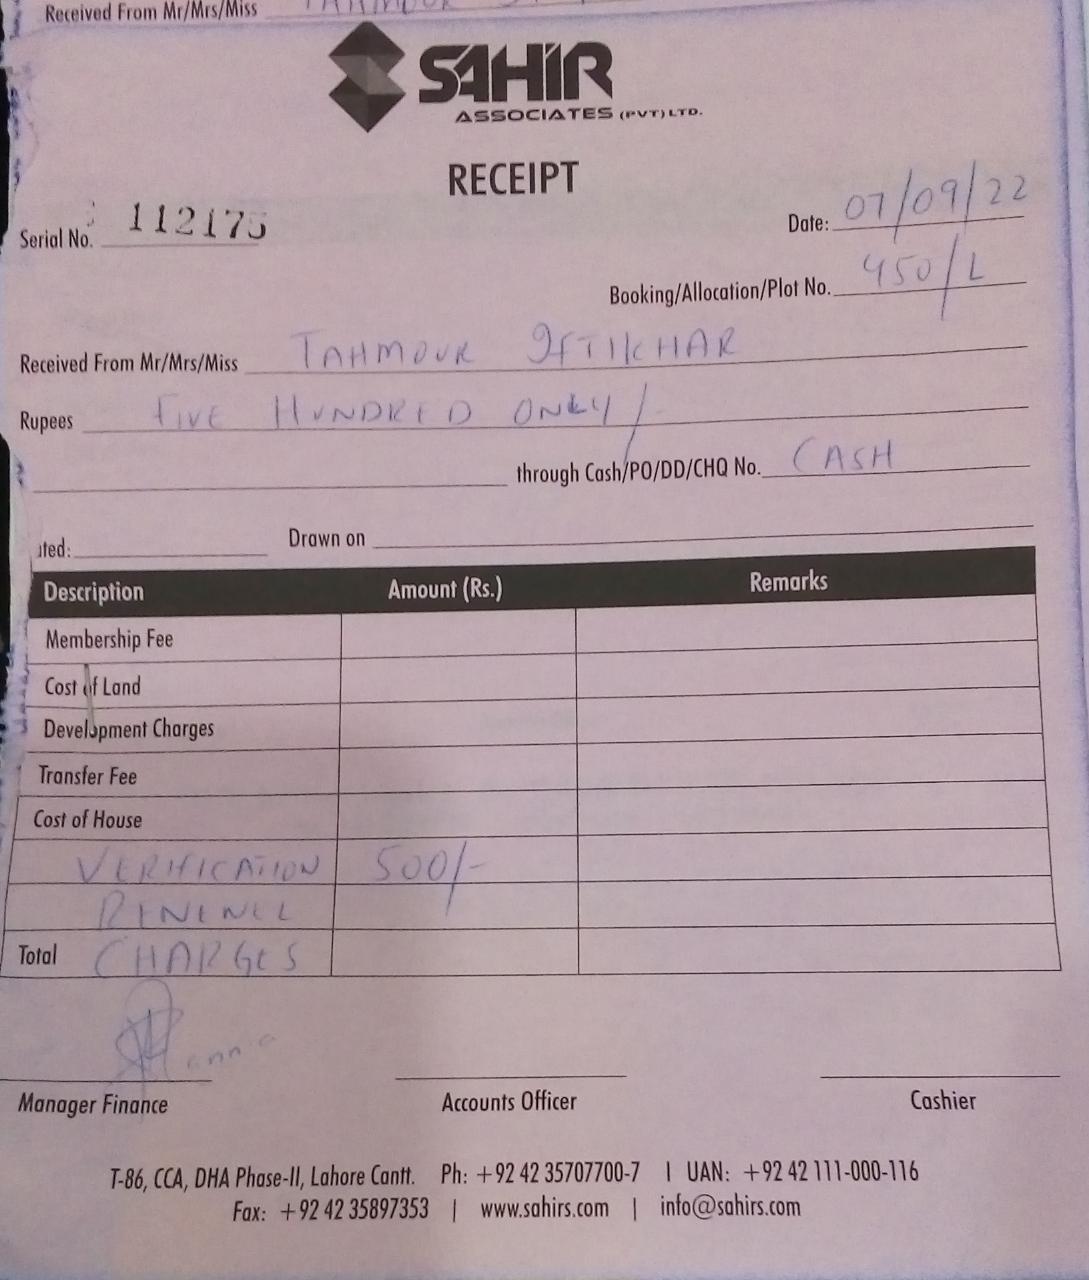 Received From Mr/Mrs/Miss
SAHIR
ASSOCIATES (PVT) LTD.
RECEIPT
Serial No. 112175
Date: 07/09/22
Booking/Allocation/Plot No. 450/L
Received From Mr/Mrs/Miss TAHMOUR IFTIKHAR
Rupees FIVE HUNDRED ONLY/-
through Cash/PO/DD/CHQ No. CASH
ated: Drawn on
Description Amount (Rs.) Remarks
Membership Fee
Cost of Land
Development Charges
Transfer Fee
Cost of House
VERIFICATION 500/-
Total CHARGES
Manager Finance Accounts Officer Cashier
T-86, CCA, DHA Phase-II, Lahore Cantt. Ph: +92 42 35707700-7 | UAN: +92 42 111-000-116
Fax: +92 42 35897353 | www.sahirs.com | info@sahirs.com